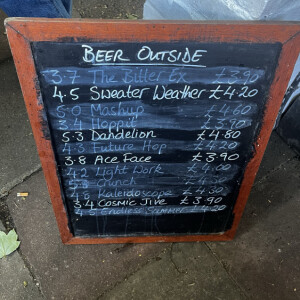 BEER OUTSIDE
3.7 The Bitter Ex £3.90
4.5 Sweater Weather £4.20
5.0 Mashup £4.60
3.4 Hoppit £3.90
5.3 Dandelion £4.80
4.3 Future Hop £4.20
3.8 Ace Face £3.90
4.2 Light Work £4.00
5.3
4.8 Kaleidoscope £4.30
3.4 Cosmic Jive £3.90
4.5 Endless Summer £4.20